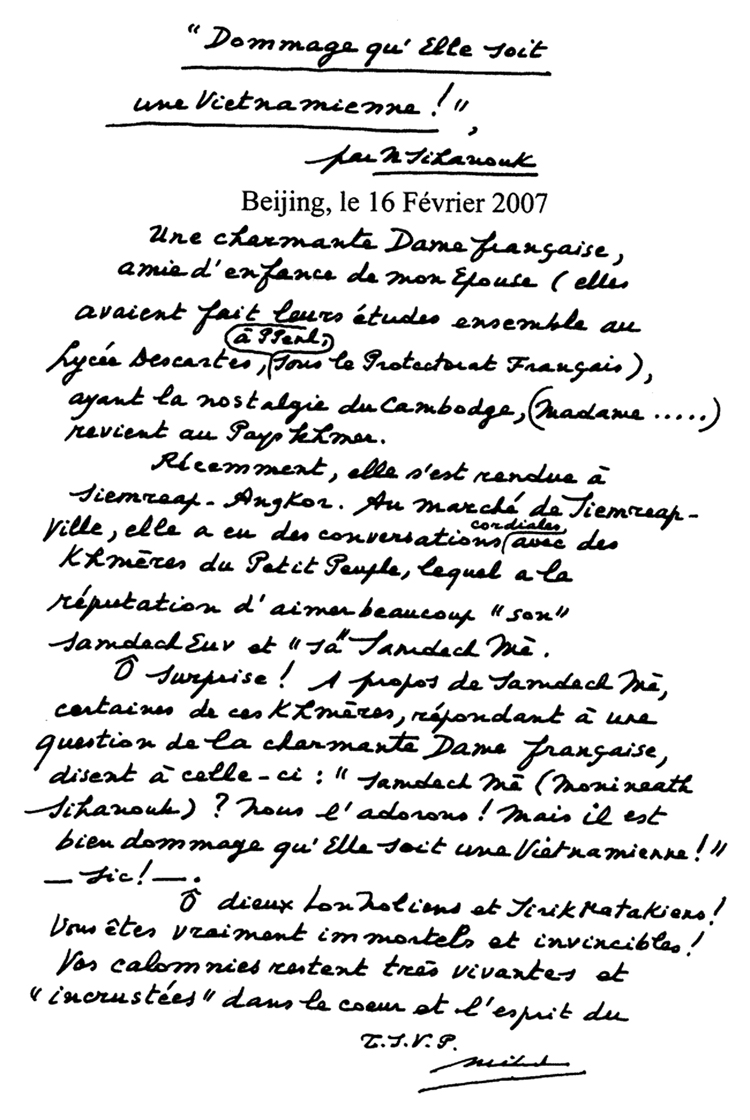 “Dommage qu'Elle soit
une Vietnamienne !”,
par N. Sihanouk
Beijing, le 16 Février 2007
Une charmante Dame française,
amie d'enfance de mon Epouse (elles
avaient fait leurs études ensemble au
à PPenh,
Lycée Descartes, sous le Protectorat Français),
ayant la nostalgie du Cambodge, (Madame .....)
revient au Pays khmer.
Récemment, elle s'est rendue à
Siemreap - Angkor. Au marché de Siemreap-
cordiales
Ville, elle a eu des conversations avec des
Khmères du Petit Peuple, lequel a la
réputation d'aimer beaucoup “son”
Samdech Euv et “sa” Samdech Mè.
Ô surprise ! A propos de Samdech Mè,
certaines de ces Khmères, répondant à une
question de la charmante Dame française,
disent à celle-ci : “Samdech Mè (Monineath
Sihanouk) ? Nous l'adorons ! Mais il est
bien dommage qu'Elle soit une Vietnamienne !”
— sic ! — .
Ô dieux LonNoliens et SirikMatakiens !
Vous êtes vraiment immortels et invincibles !
Vos calomnies restent très vivantes et
“incrustées” dans le coeur et l'esprit du
T.S.V.P.